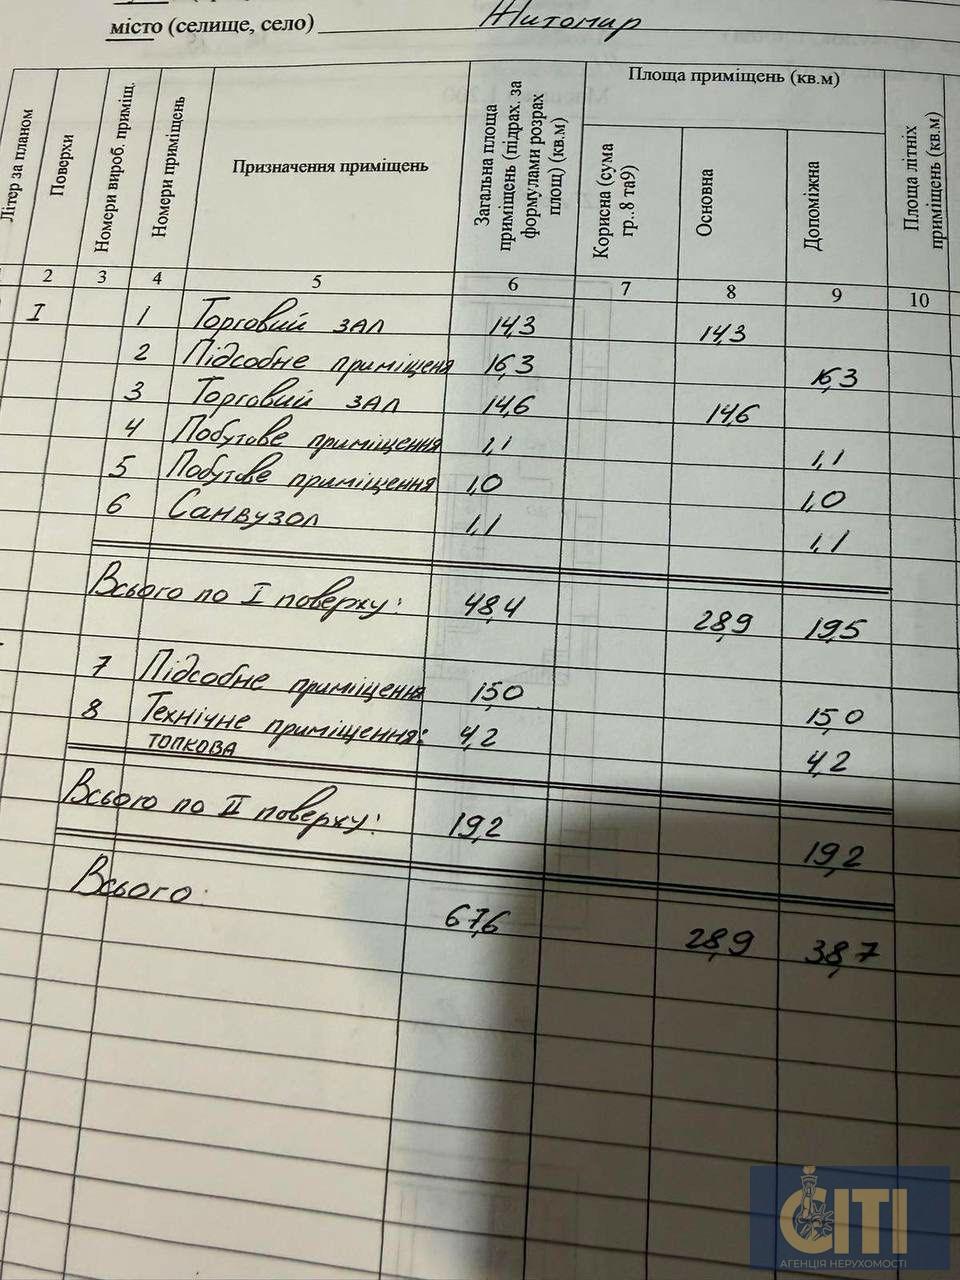 місто (селище, село) Житомир
Літер за планом
Поверхи
Номери вироб. приміщ.
Номери приміщень
Призначення приміщень
Загальна площа приміщень (підрах. за формулами розрах площ) (кв.м)
Площа приміщень (кв.м)
Корисна (сума гр..8 та9)
Основна
Допоміжна
Площа літніх приміщень (кв.м)
2 3 4 5 6 7 8 9 10
I 1 Торговий зал 14,3 14,3
2 Підсобне приміщеня 16,3 16,3
3 Торговий зал 14,6 14,6
4 Побутове приміщення 1,1 1,1
5 Побутове приміщення 1,0 1,0
6 Санвузол 1,1 1,1
Всього по I поверху: 48,4 28,9 19,5
7 Підсобне приміщення 15,0 15,0
8 Технічне приміщення: 4,2 4,2
топкова
Всього по II поверху: 19,2 19,2
Всього: 67,6 28,9 38,7
СІТІ
АГЕНЦІЯ НЕРУХОМОСТІ